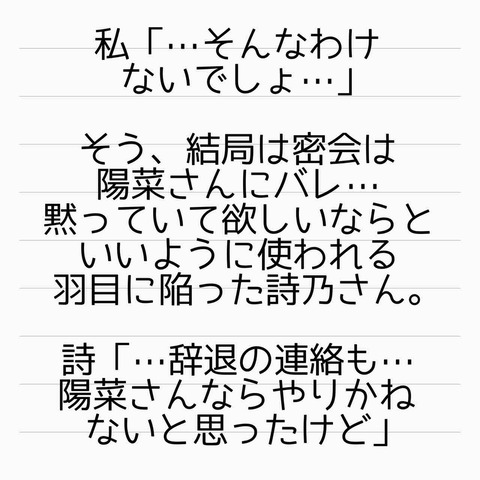 私「…そんなわけ
ないでしょ…」
そう、結局は密会は
陽菜さんにバレ…
黙っていて欲しいならと
いいように使われる
羽目に陥った詩乃さん。
詩「…辞退の連絡も…
陽菜さんならやりかね
ないと思ったけど」